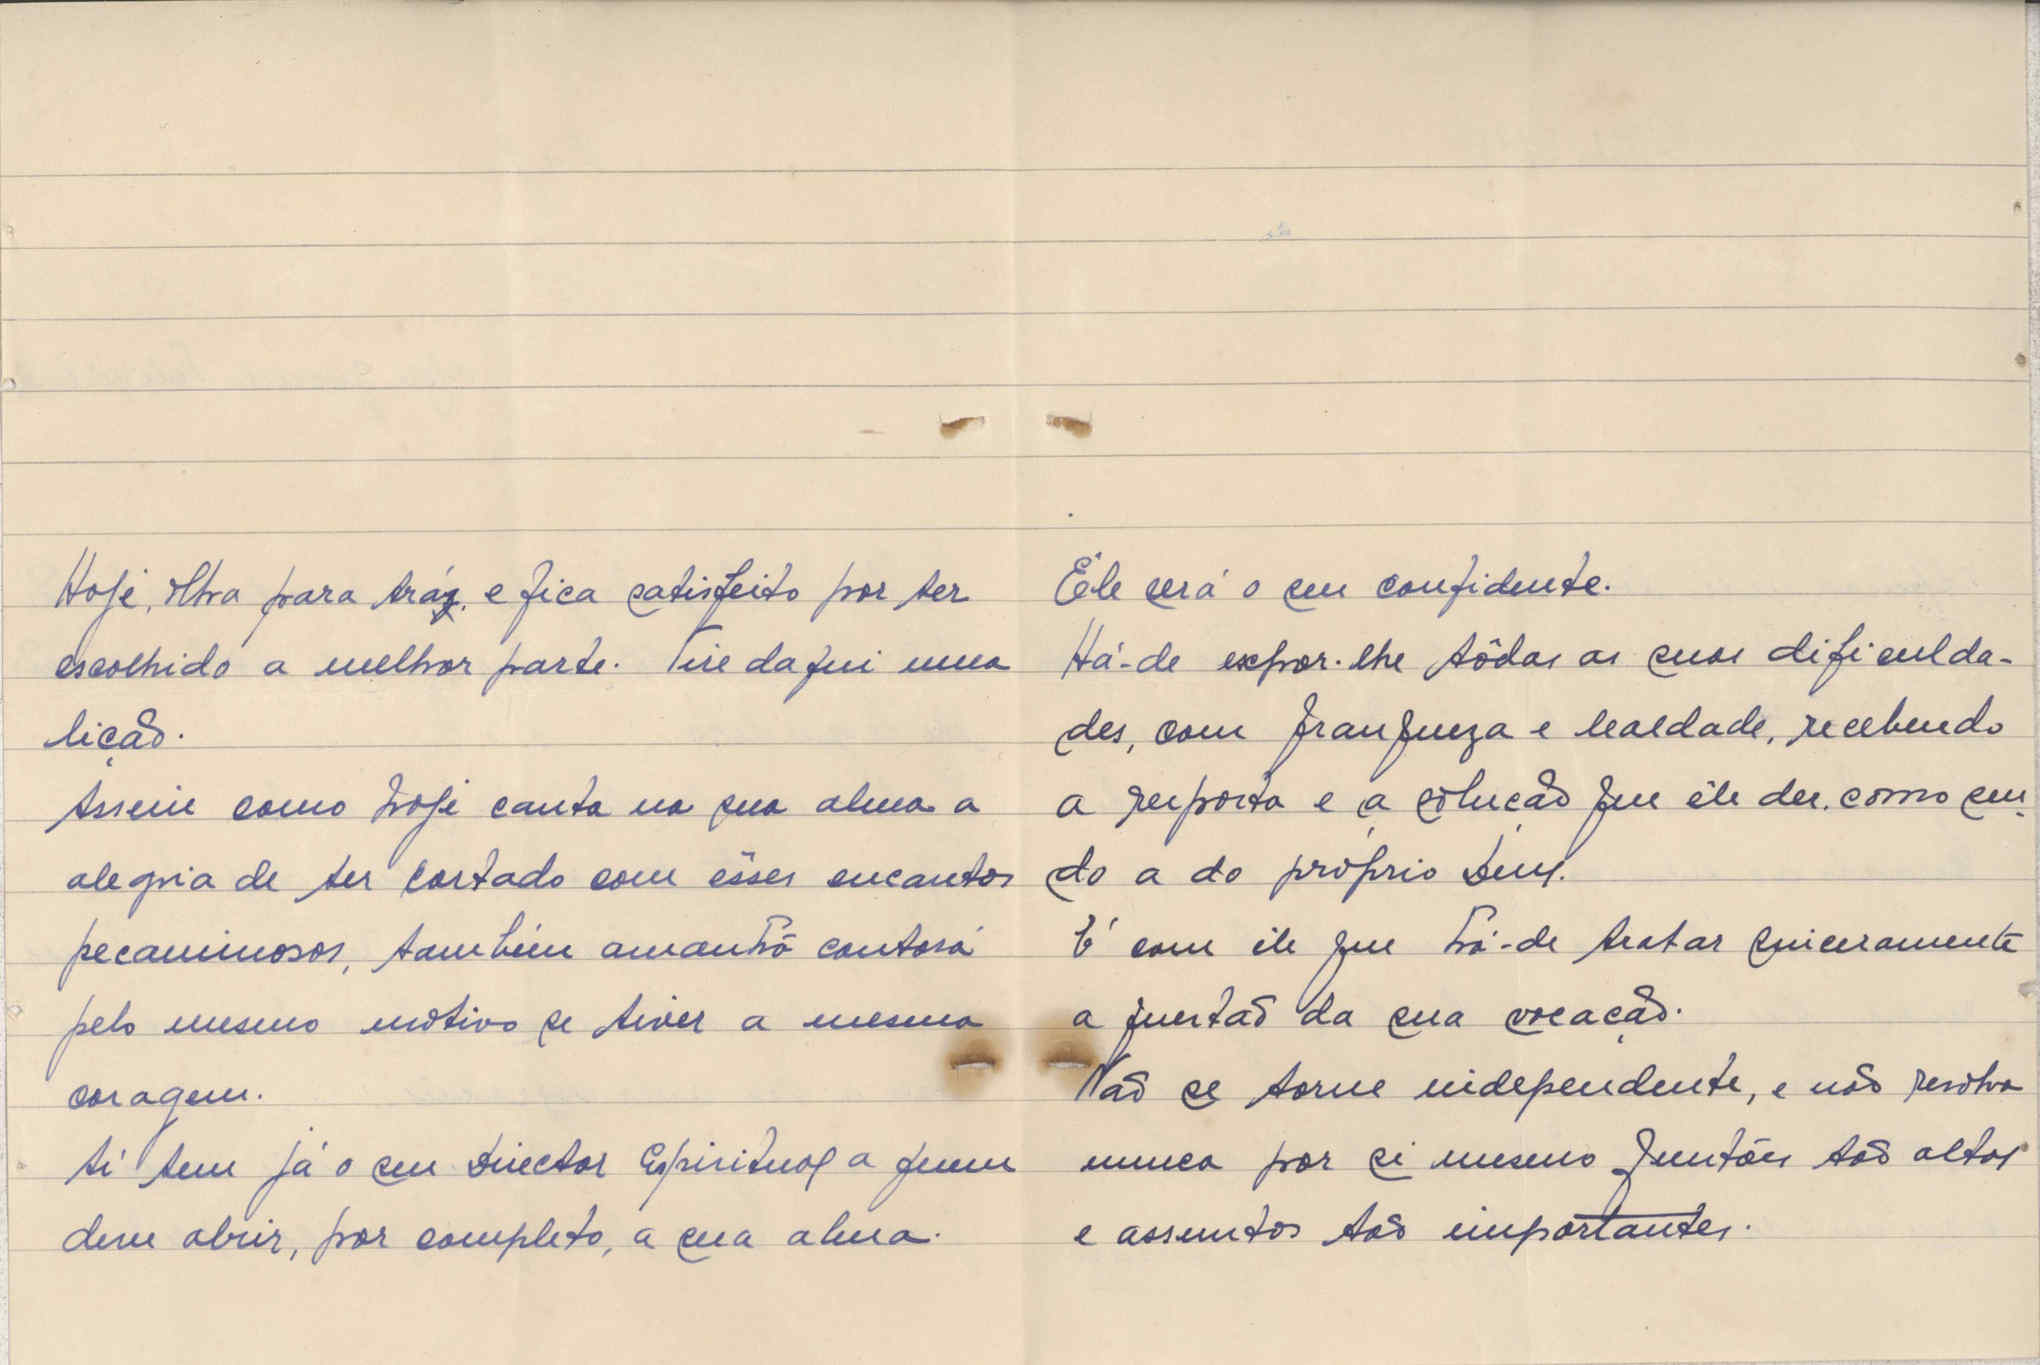 Hoje, olha para tráz, e fica satisfeito por ter
escolhido a melhor parte. Tire daqui uma
lição.
Assim como hoje canta na sua alma a
alegria de ter cortado com êsses encantos
pecaminosos, também amanhã cantará
pelo mesmo motivo se tiver a mesma
coragem.
Aí tem já o seu Director Espiritual a quem
deve abrir, por completo, a sua alma.
Êle será o seu confidente.
Há-de expor-lhe tôdas as suas dificulda-
des, com franqueza e lealdade, recebendo
a resposta e a solução que êle der, como sen-
do a do próprio Deus.
É com êle que há-de tratar sinceramente
a questão da sua vocação.
Não se torne independente, e não resolva
nunca por si mesmo questões tão altas
e assuntos tão importantes.